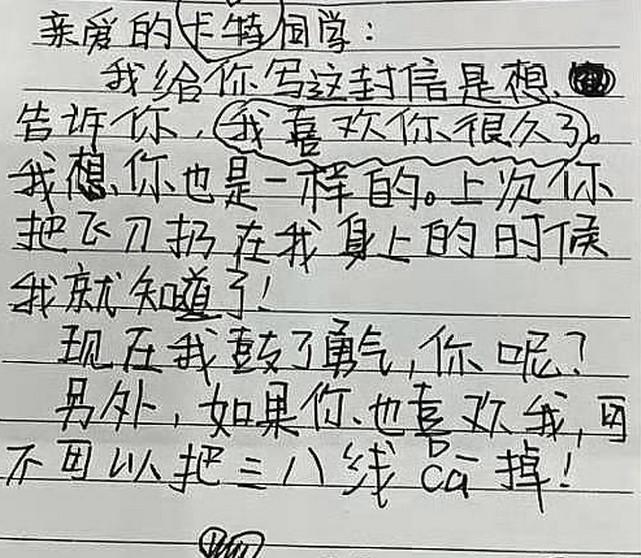 亲爱的卡特同学：
我给你写这封信是想、
告诉你，我喜欢你很久了。
我想、你也是一样的。上次你
把飞刀扔在我身上的时候
我就知道了！
现在我鼓了勇气，你呢？
另外，如果你、也喜欢我，可
不可以把三八线 cā 掉！